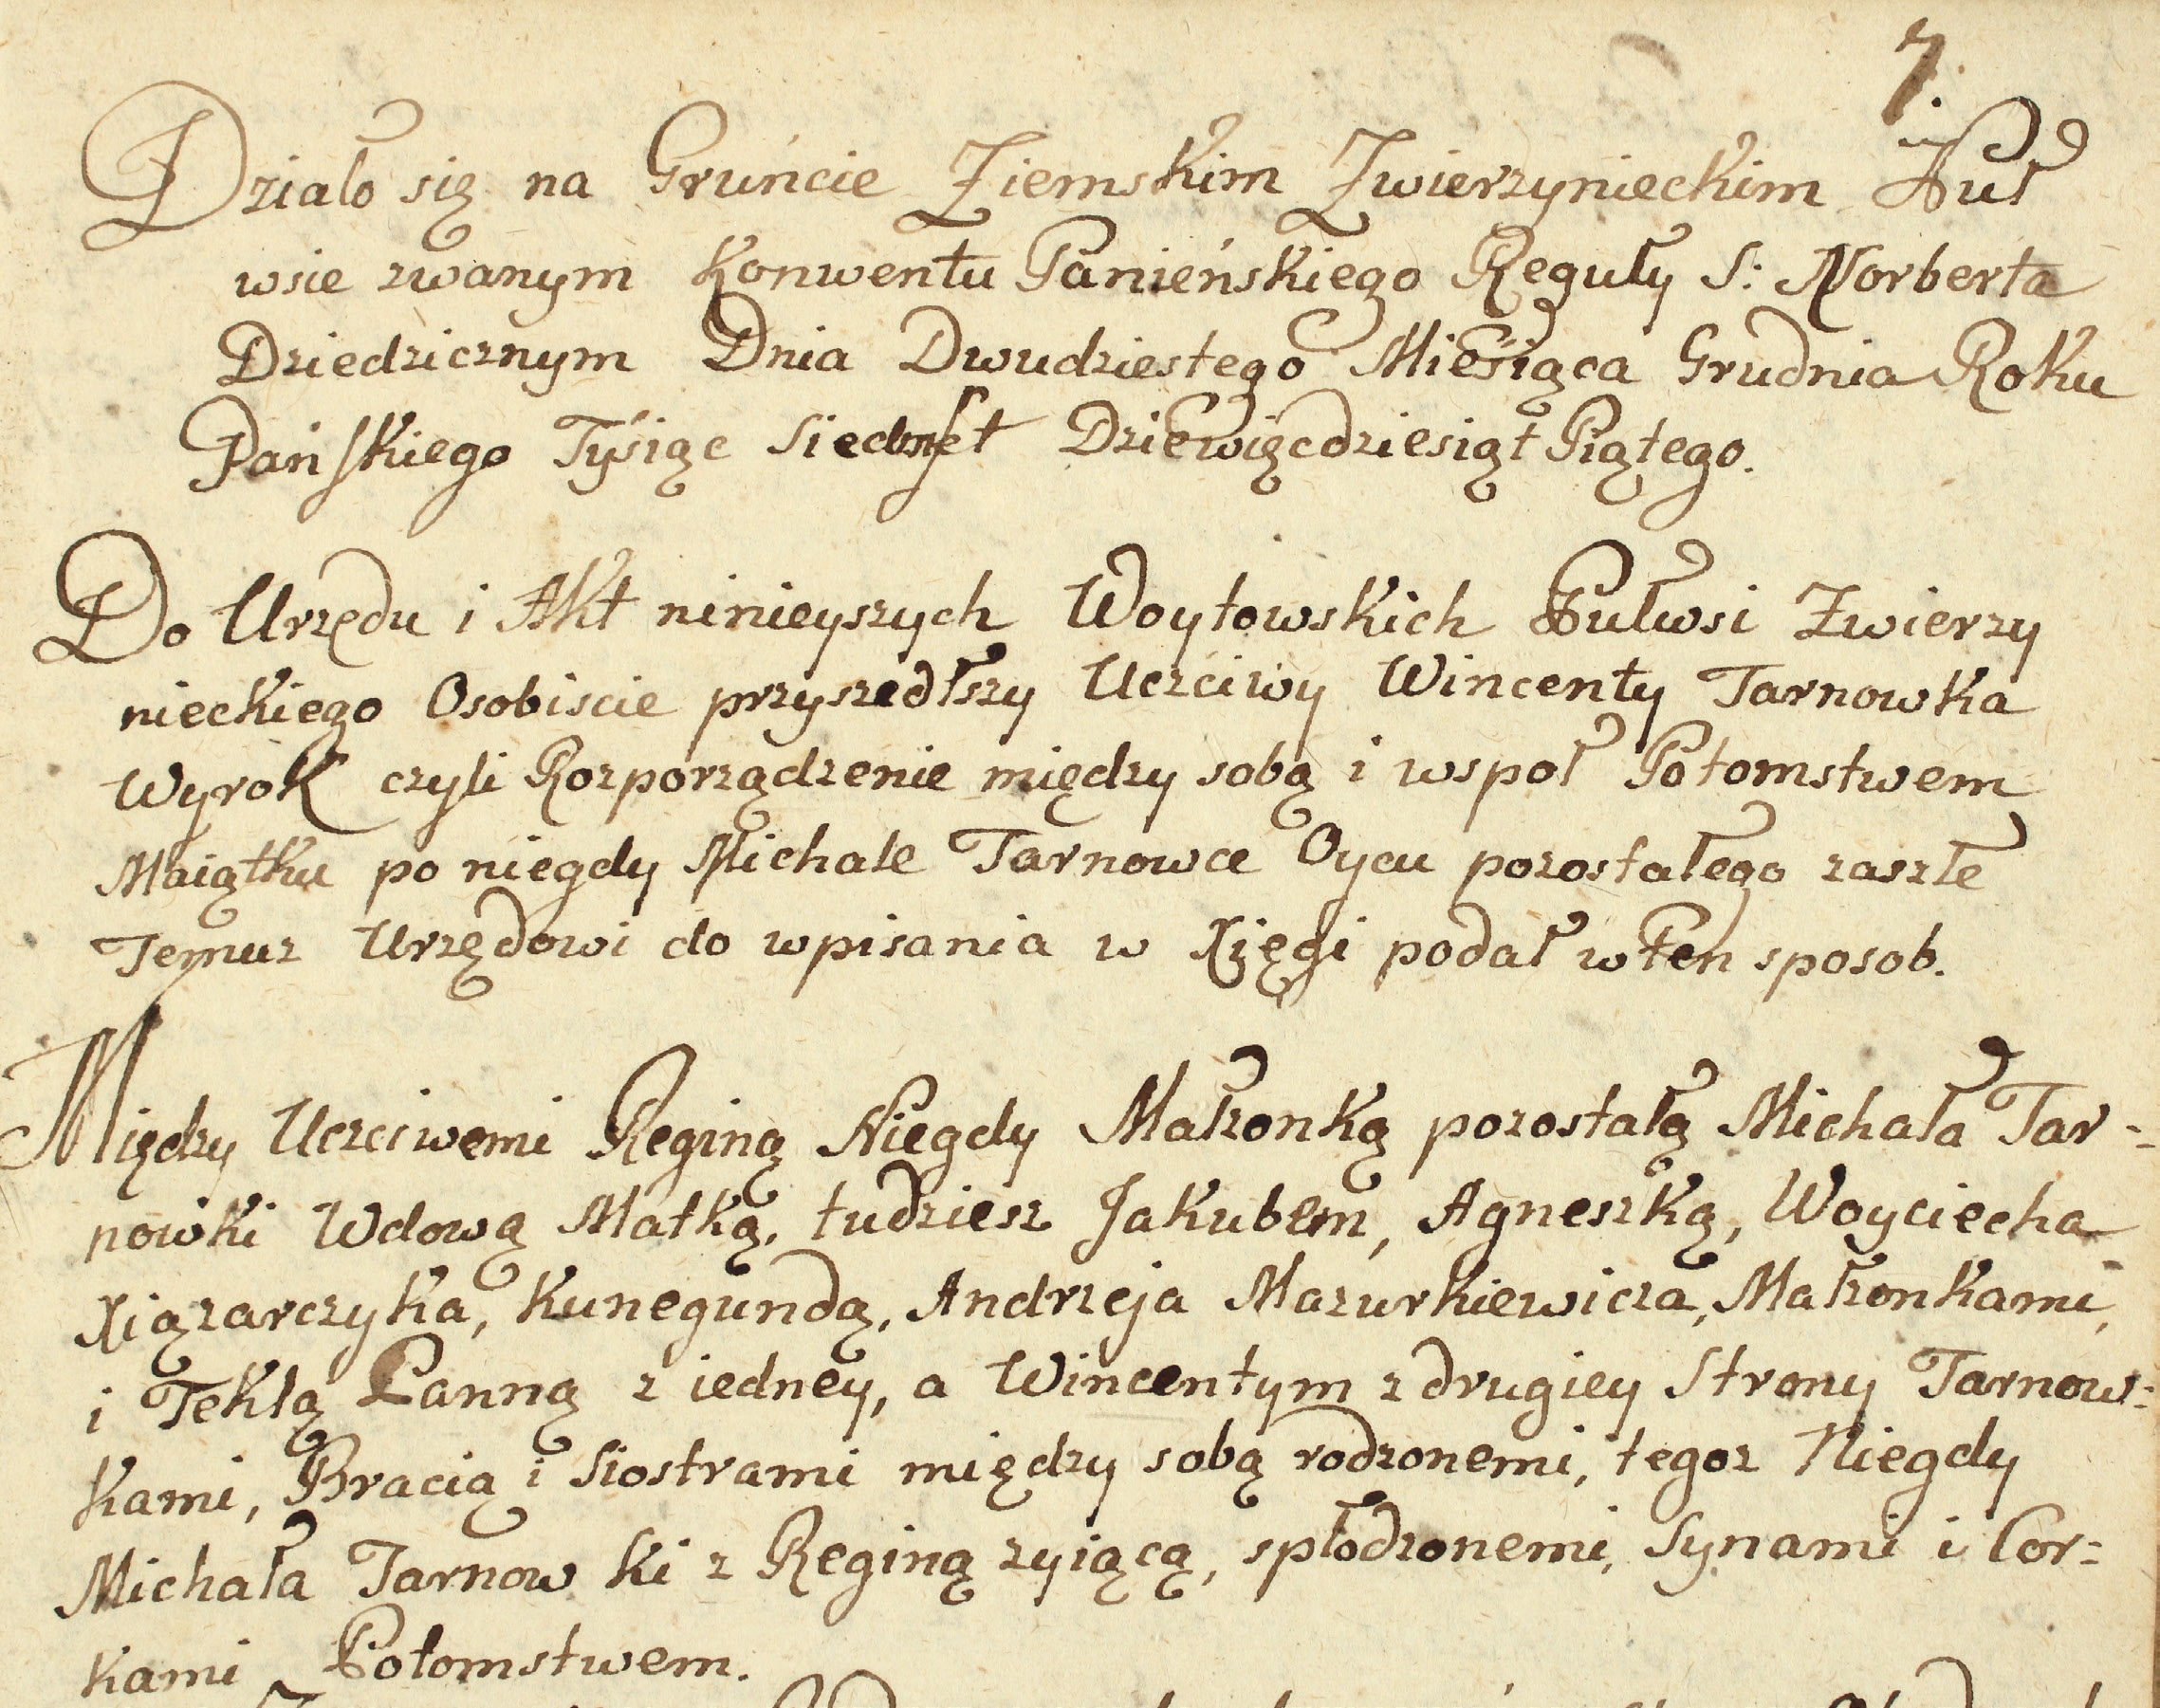 7.
Działo się na Gruńcie Ziemskim Zwierzynieckim Puł
wsie zwanym Konwentu Panieńskiego Reguły S: Norberta
Dziedzicznym Dnia Dwudziestego Miesiąca Grudnia Roku
Pańskiego Tysiąc Siedmset Dziewięcdziesiąt Piątego.
Do Urzędu i Akt ninieyszych Woytowskich Pułwsi Zwierzy
nieckiego Osobiscie przyszedłszy Uczciwy Wincenty Tarnowka
Wyrok czyli Rozporządzenie między sobą i wspoł Potomstwem
Maiątku po niegdy Michale Tarnowce Oycu pozostałego zaszłe
Temuz Urzędowi do wpisania w Xięgi podał w ten sposob.
Między Uczciwemi Reginą Niegdy Małzonką pozostałą Michała Tar-
nowki Wdową Matką, tudziesz Jakubem, Agneszką, Woyciecha
Xiązarczyka, Kunegundą, Andrzeja Mazurkiewicza, Małzonkami,
i Teklą Panną z iedney, a Wincentym z drugiey Strony Tarnow:
kami, Bracią i Siostrami między sobą rodzonemi, tegoz Niegdy
Michała Tarnowki z Reginą zyiącą, spłodzonemi, Synami i Cor:
kami Potomstwem.